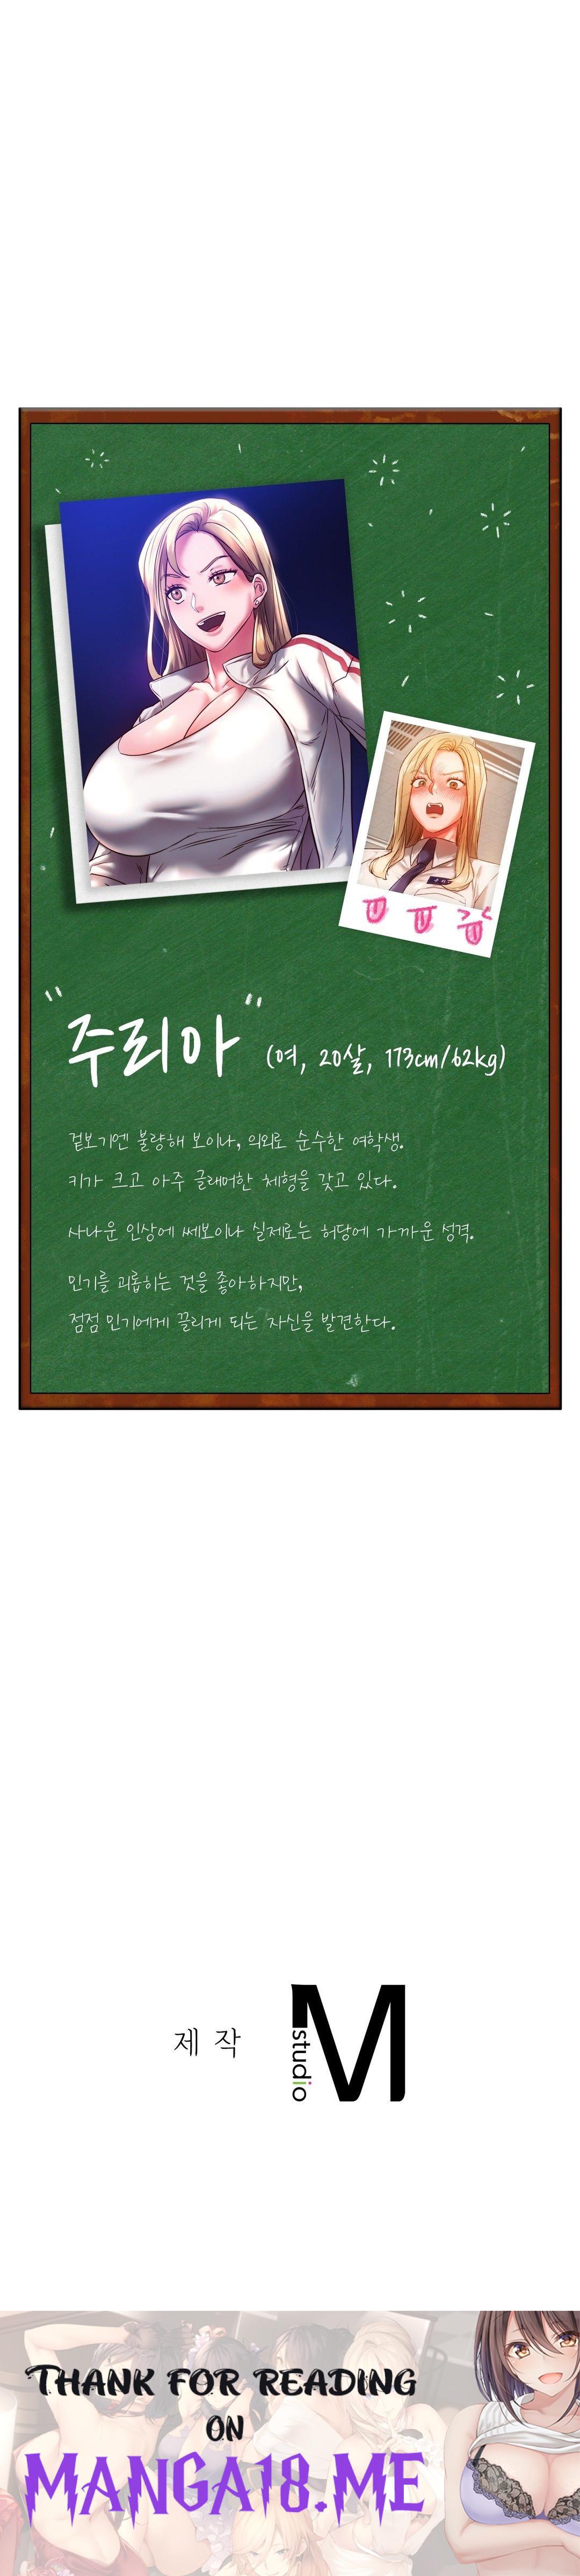 "주리아" (여, 20살, 173cm/62kg)
겉보기엔 불량해 보이나, 의외로 순수한 여학생.
키가 크고 아주 글래머한 체형을 갖고 있다.
사나운 인상에 쎄보이나 실제로는 허당에 가까운 성격.
민기를 괴롭히는 것을 좋아하지만,
점점 민기에게 끌리게 되는 자신을 발견한다.
제작
M studio
THANK FOR READING
ON
MANGA18.ME